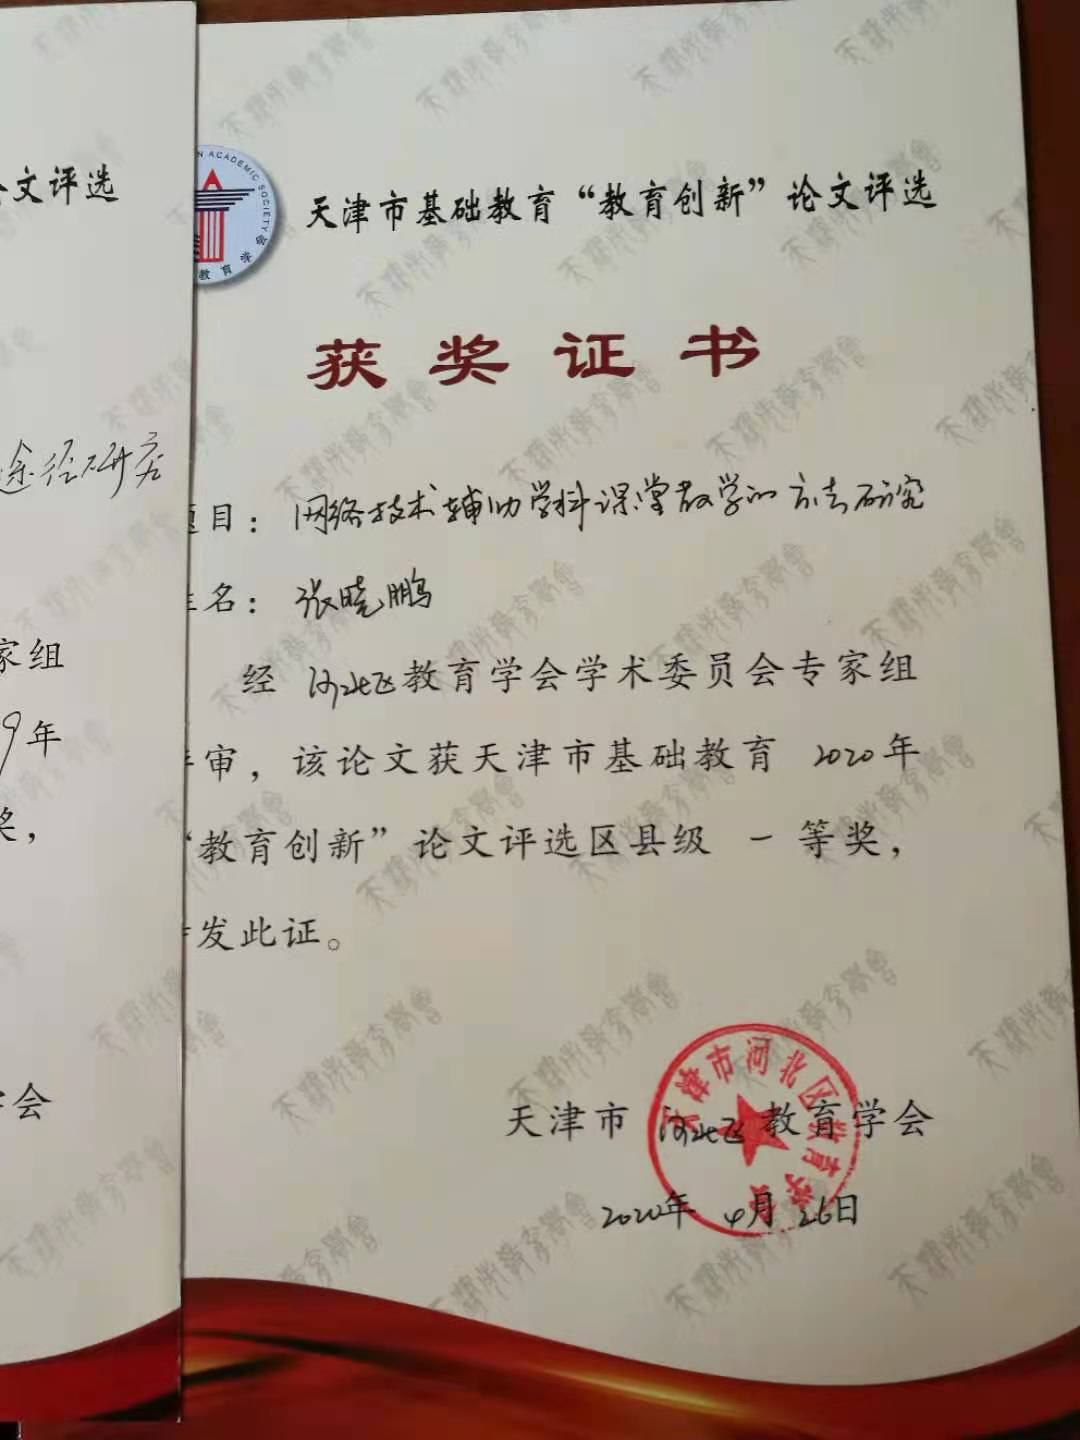 文评选
途径研究
家组
9年
奖，
会
N ACADEMIC SOCIETY
教育学会
天津市基础教育“教育创新”论文评选
获奖证书
题目：网络技术辅助学科课堂教学的方法研究
姓名：张晓鹏
经河北区教育学会学术委员会专家组
评审，该论文获天津市基础教育 2020年
“教育创新”论文评选区县级 一等奖，
特发此证。
天津市河北区教育学会
天津市 河北区 教育学会
2020年 4月 26日